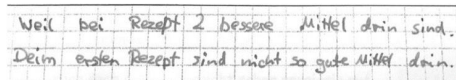 Weil bei Rezept 2 bessere Mittel drin sind.
Deim ersten Rezept sind nicht so gute Mittel drin.